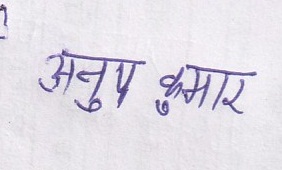 अनुप कुमार